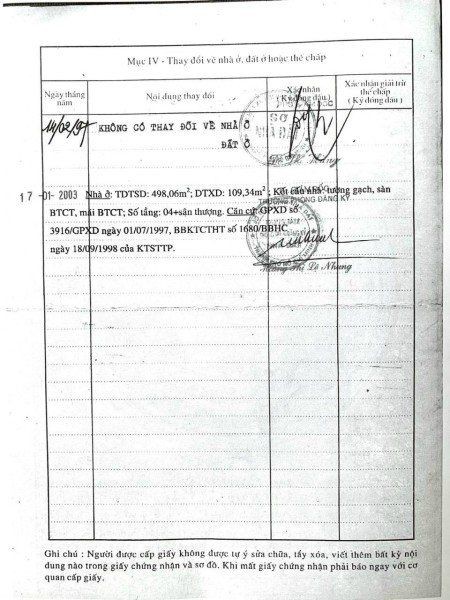 Mục IV - Thay đổi về nhà ở, đất ở hoặc thế chấp
Ngày tháng năm
Nội dung thay đổi
Xác nhận
( Ký đóng dấu )
Xác nhận giải trừ thế chấp
( Ký đóng dấu )
14/02/97 KHÔNG CÓ THAY ĐỔI VỀ NHÀ Ở
ĐẤT Ở
SỞ
NHÀ ĐẤT
17 -01- 2003 Nhà ở: TDTSD: 498,06m²; DTXD: 109,34m²; Kết cấu nhà: tường gạch, sàn
TRƯỞNG PHÒNG ĐĂNG KÝ
BTCT, mái BTCT; Số tầng: 04+sân thượng. Căn cứ: GPXD số
3916/GPXD ngày 01/07/1997, BBKTCTHT số 1680/BBHC
ngày 18/09/1998 của KTSTTP.
Thị Lệ Nhung
Ghi chú : Người được cấp giấy không được tự ý sửa chữa, tẩy xóa, viết thêm bất kỳ nội
dung nào trong giấy chứng nhận và sơ đồ. Khi mất giấy chứng nhận phải báo ngay với cơ
quan cấp giấy.